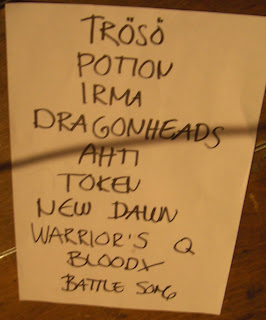 TRÖSÖ
POTION
IRMA
DRAGONHEADS
AHTI
TOKEN
NEW DAWN
WARRIOR'S Q
BLOODX
BATTLE SONG